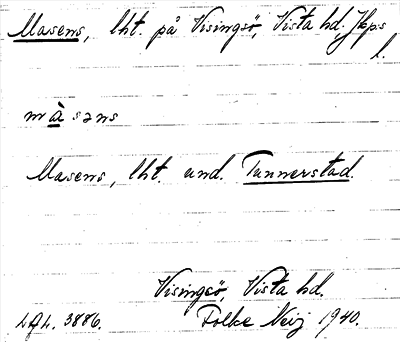 Masens, lht. på Visingsö, Vista hd. Jkps
l.
màsəns
Masens, lht. und. Tunnerstad.
Visingsö, Vista hd
LAL. 3886. Folke Neij 1940.